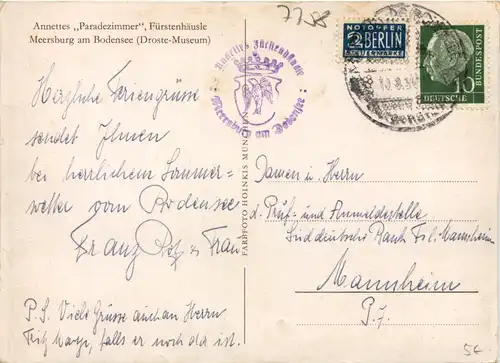 Annettes „Paradezimmer“, Fürstenhäusle
Meersburg am Bodensee (Droste-Museum)
7788
Herzliche Feriengrüsse
sendet Ihnen
bei herrlichem Sommer-
wetter vom Bodensee
Franz & Frau
P.S. Viele Grüsse auch an Herrn
Fritz, falls er noch da ist.
FARBFOTO HOINKIS MÜNCHEN
Meersburg am Bodensee
NOTOPFER
2 BERLIN
STEUERMARKE
10
DEUTSCHE BUNDESPOST
Damen u. Herren
d. Prüf- und Anmeldestelle
Süddeutsche Bank Fil. Mannheim
Mannheim
P. 7.
5€